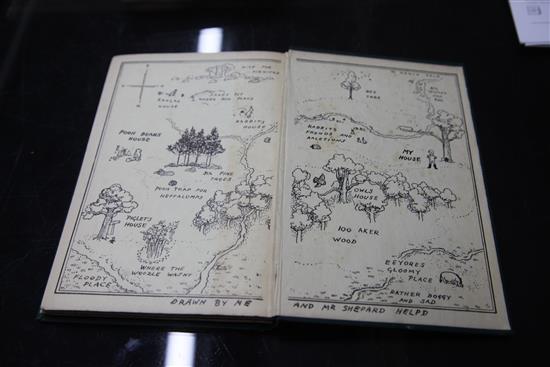 NICE FOR
PIKNICKS
KANGAS
HOUSE
SANDY PIT
WHERE ROO PLAYS
RABBITS
HOUSE
POOH BEARS
HOUSE
SIX PINE
TREES
POOH TRAP FOR
HEFFALUMPS
PIGLETS
HOUSE
WHERE THE
WOOZLE WASNT
FLOODY
PLACE
DRAWN BY ME
TO NORTH POLE
BIG
STONES
AND
ROX
BEE
TREE
RABBITS
FRENDS AND
RALETIONS
MY
HOUSE
OWLS
HOUSE
100 AKER
WOOD
EEYORES
GLOOMY
PLACE
RATHER BOGGY
AND SAD
AND MR SHEPARD HELPD